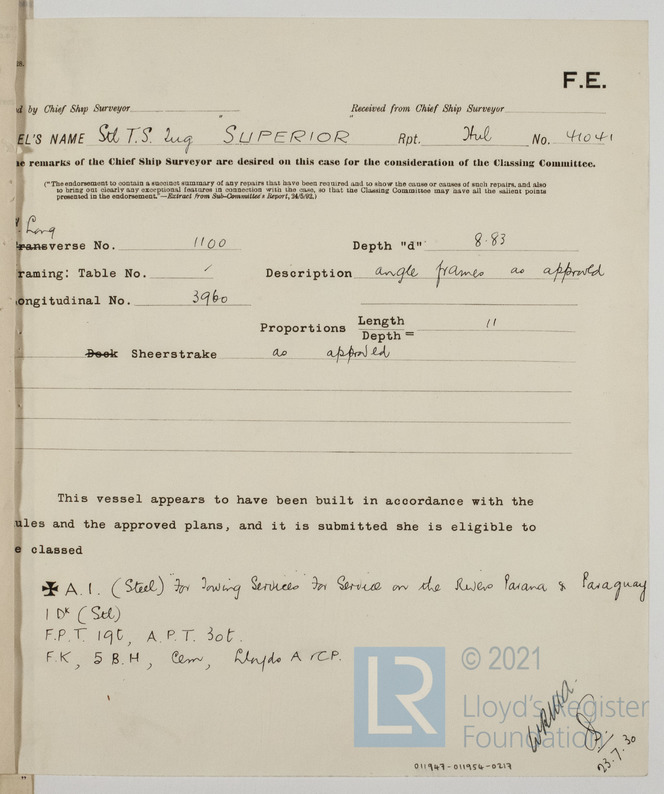 F.E.
d by Chief Ship Surveyor Received from Chief Ship Surveyor
EL'S NAME Stl T.S. Tug SUPERIOR Rpt. Hul No. 41041
e remarks of the Chief Ship Surveyor are desired on this case for the consideration of the Classing Committee.
("The endorsement to contain a succinct summary of any repairs that have been required and to show the cause or causes of such repairs, and also
to bring out clearly any exceptional features in connection with the case, so that the Classing Committee may have all the salient points
presented in the endorsement."—Extract from Sub-Committee's Report, 24/5/02.)
Long
Transverse No. 1100 Depth "d" 8.83
raming: Table No. ✓ Description angle frames as approved
ongitudinal No. 3960
Proportions Length / Depth = 11
Deck Sheerstrake as approved
This vessel appears to have been built in accordance with the
ules and the approved plans, and it is submitted she is eligible to
e classed
✠ A.1. (Steel) "For Towing Services" For Service on the Rivers Parana & Paraguay
1 Dk (Stl)
F.P.T. 19t, A.P.T. 30t.
F.K, 5 B.H, Cem, Lloyds A & C.P.
LR © 2021
Lloyd's Register
Foundation
23.7.30
011947-011954-0217